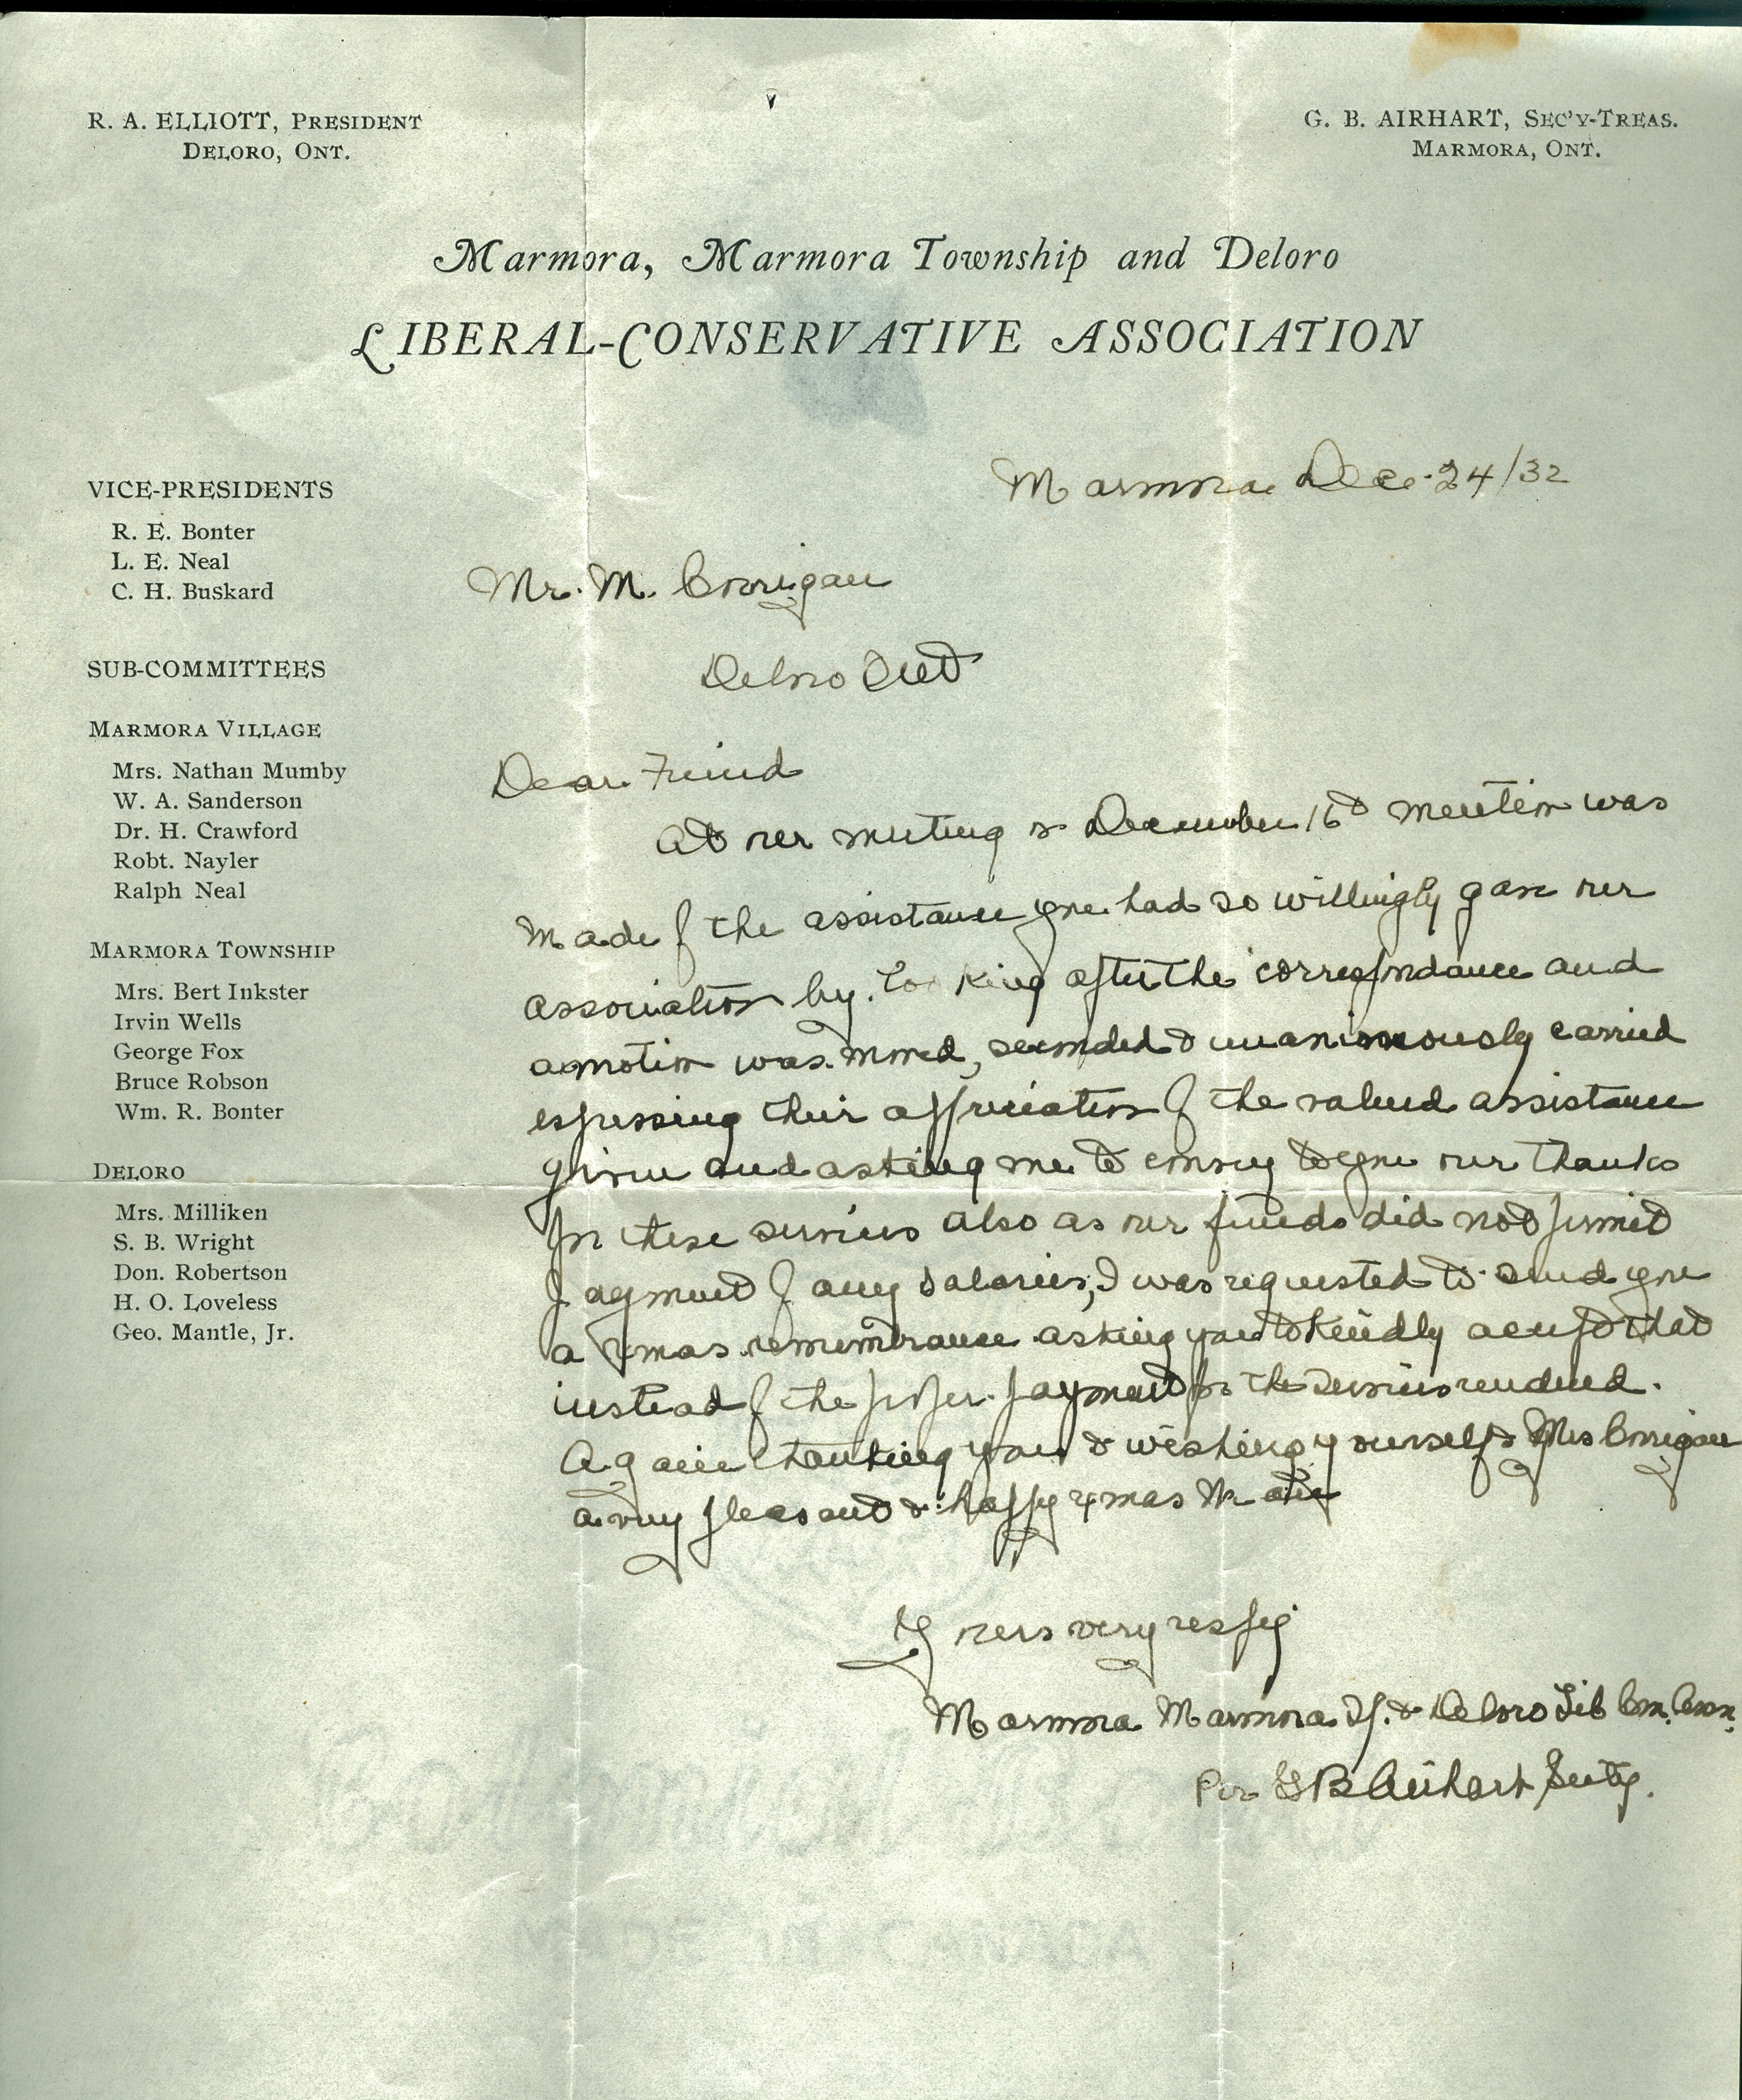 R. A. ELLIOTT, PRESIDENT
DELORO, ONT.
G. B. AIRHART, SEC'Y-TREAS.
MARMORA, ONT.
Marmora, Marmora Township and Deloro
LIBERAL-CONSERVATIVE ASSOCIATION
VICE-PRESIDENTS
R. E. Bonter
L. E. Neal
C. H. Buskard
SUB-COMMITTEES
MARMORA VILLAGE
Mrs. Nathan Mumby
W. A. Sanderson
Dr. H. Crawford
Robt. Nayler
Ralph Neal
MARMORA TOWNSHIP
Mrs. Bert Inkster
Irvin Wells
George Fox
Bruce Robson
Wm. R. Bonter
DELORO
Mrs. Milliken
S. B. Wright
Don. Robertson
H. O. Loveless
Geo. Mantle, Jr.
Marmora Dec. 24/32
Mr. M. Corrigan
Deloro Ont
Dear Friend
At our meeting on December 16th mention was
made of the assistance you had so willingly gave our
association by looking after the correspondance and
a motion was moved, seconded & unanimously carried
expressing their appreciation of the valued assistance
given and asking me to convey to you our thanks
for these services also as our funds did not permit
payment of any salaries, I was requested to send you
a Xmas remembrance asking you to kindly accept that
instead of the proper payment for the services rendered.
Again thanking you & wishing yourself & Mrs Corrigan
a very pleasant & happy Xmas
Yours very respy
Marmora Marmora Tp. & Deloro Lib Con. Assn.
Per G B Airhart Secty.
MADE IN CANADA